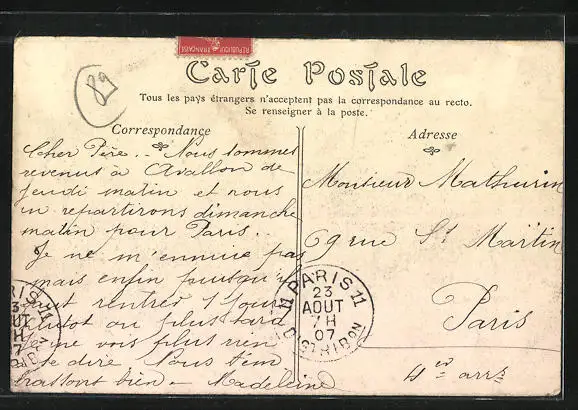 REPUBLIQUE FRANÇAISE
89
Carte Postale
Tous les pays étrangers n'acceptent pas la correspondance au recto.
Se renseigner à la poste.
Correspondance
Cher Père.. Nous sommes
revenus à Avallon de
jeudi matin et nous
en repartirons dimanche
matin pour Paris..
Je ne m'ennuie pas
mais enfin puisqu'il
faut rentrer 1 jour
plutot ou plus tard
Je ne vois plus rien
te dire Nous t'em
brassons bien - Madeleine
Adresse
Monsieur Mathurin
69 rue St Martin
Paris
4er arrt
PARIS 11
23
AOUT
7H
07
DISTRIBON